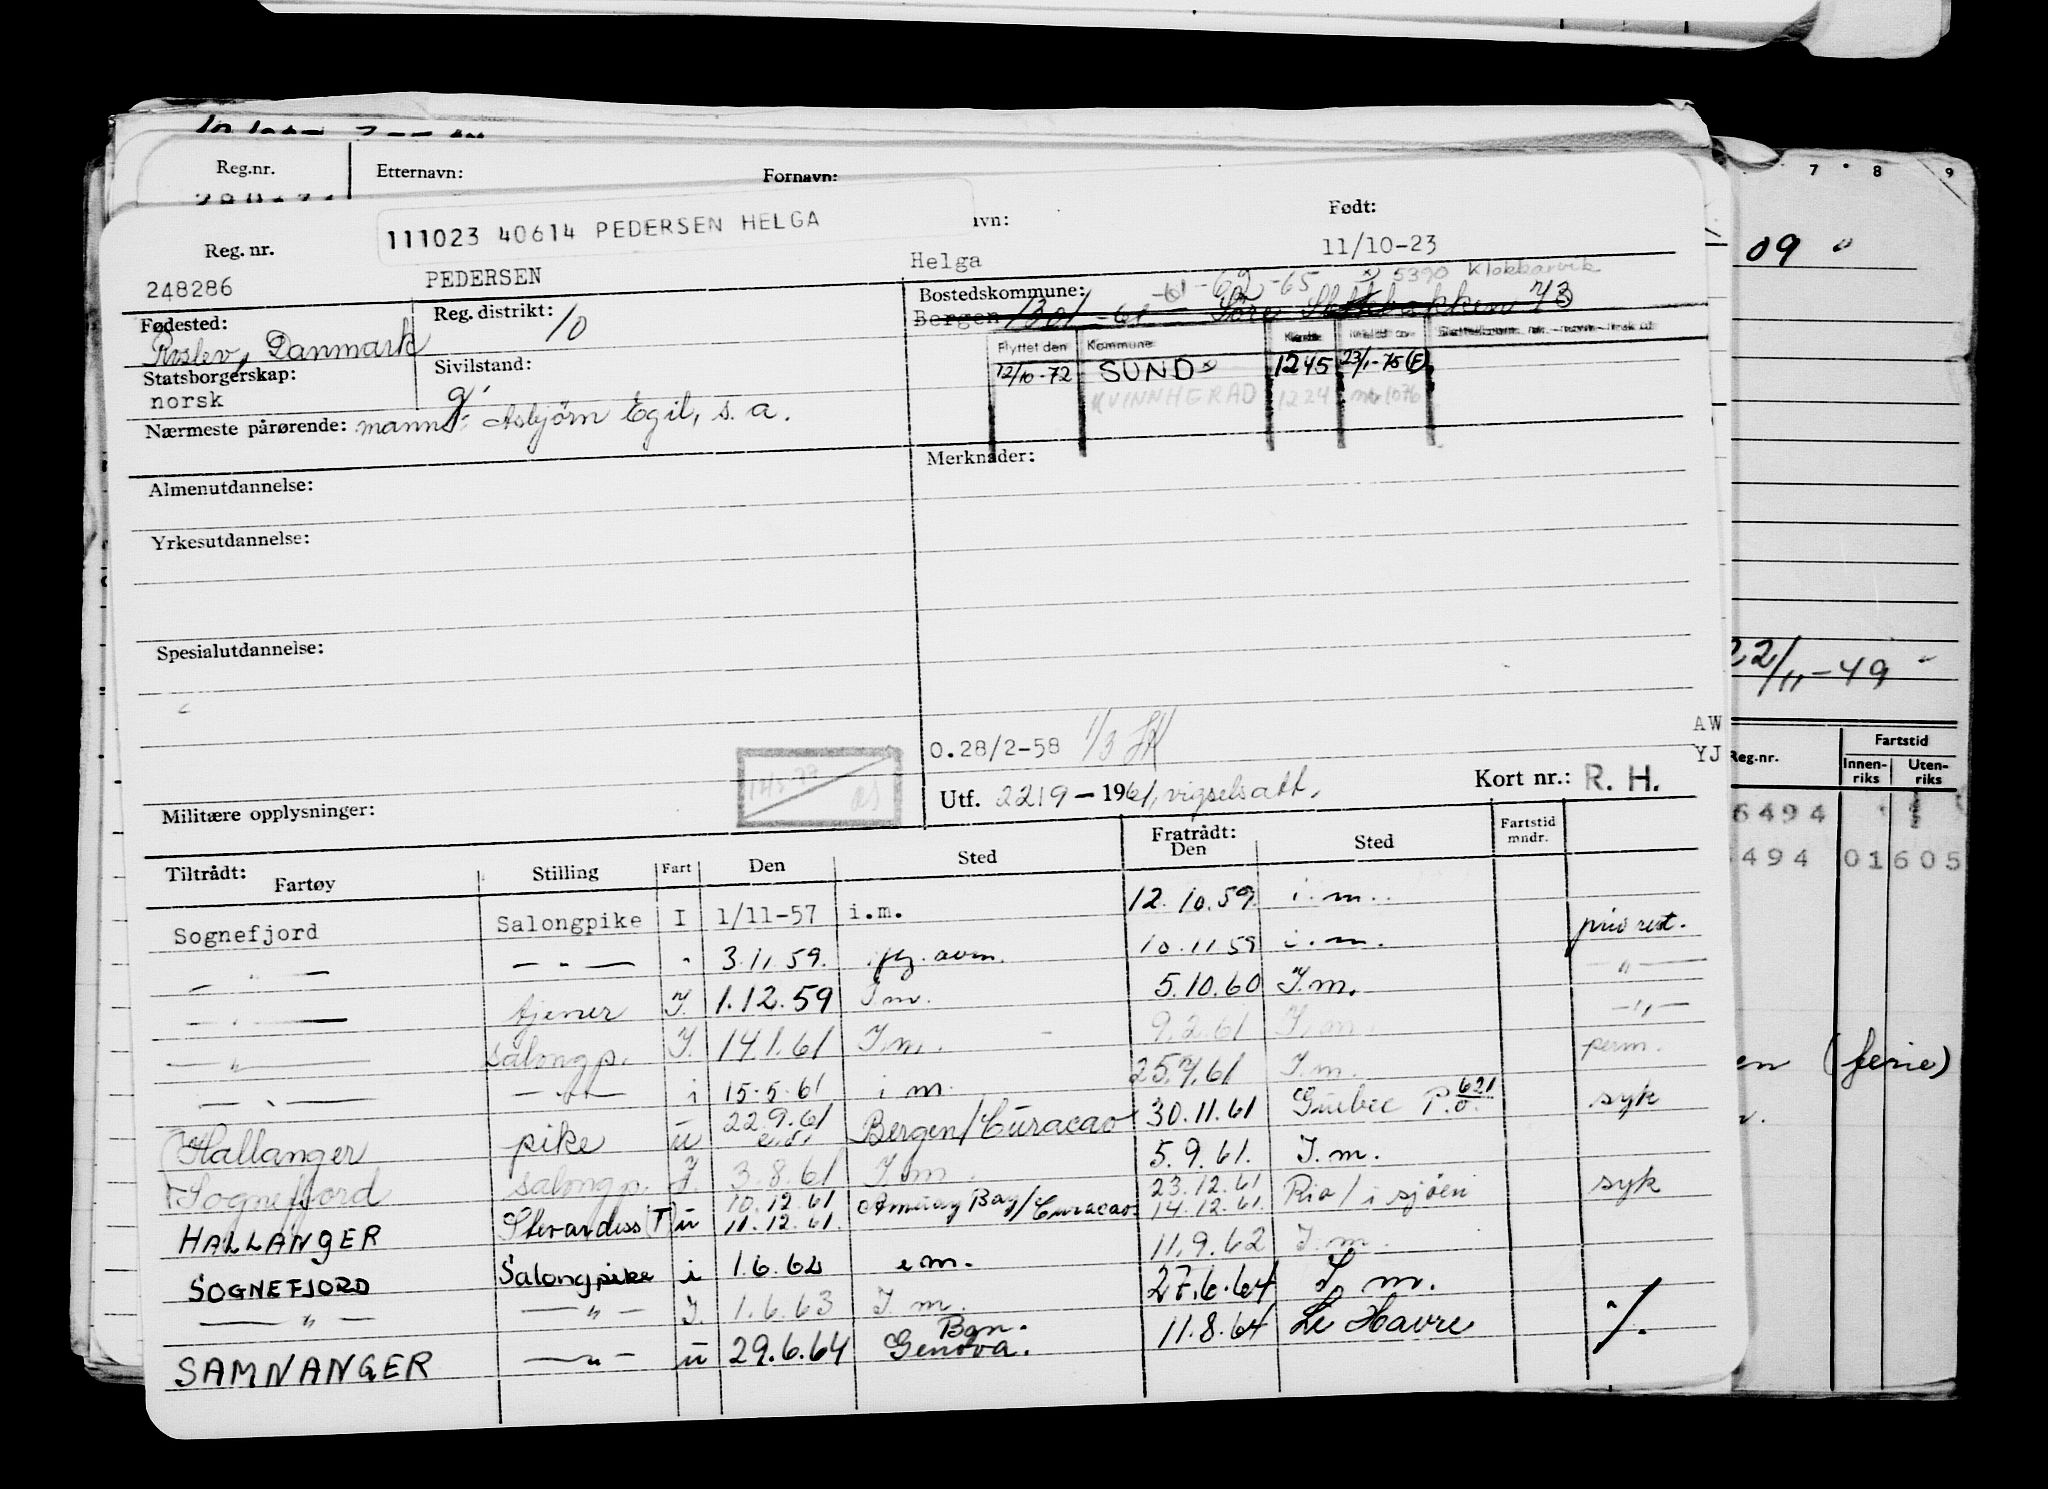 Reg.nr. Etternavn: Fornavn:
7 8 9
111023 40614 PEDERSEN HELGA
Reg. nr. vn: Født:
248286 PEDERSEN Helga 11/10-23
09
Fødested: Reg. distrikt: 10 Bostedskommune: -61 -62 -65 5390 Klokkarvik
Danmark Bergen 1301 -61
Flyttet den Kommune
Statsborgerskap: Sivilstand: 12/10-72 SUND 1245 23/1-75
norsk g. KVINNHERAD 1224
Nærmeste pårørende: mann: Asbjørn Egil, s.a.
Merknader:
Almenutdannelse:
Yrkesutdannelse:
Spesialutdannelse:
22/11-49
AW
O.28/2-58 1/3
YJ
Reg.nr. Fartstid
Innenriks Utenriks
Utf. 2219-1961, vigselsatt. Kort nr.: R. H.
6494
Militære opplysninger:
494 01605
Tiltrådt: Fratrådt: Fartstid mndr.
Fartøy Stilling Fart Den Sted Den Sted
Sognefjord Salongpike I 1/11-57 i.m. 12.10.59. i.m.
— " — — " — " 3.11.59. avm. 10.11.59 i.m.
— " — tjener I. 1.12.59 I m. 5.10.60 I.m. — " —
— " — salongp. I. 14.1.61 I.m. 9.2.61 I.m. — " —
— " — — " — i 15.5.61 i m. 25.7.61 I.m. perm.
Hallanger pike u 22.9.61 Bergen/Curacao 30.11.61 P.o. 621 syk
Sognefjord salongp. I. 3.8.61 I.m. 5.9.61. I.m.
HALLANGER (T) u 10.12.61 11.12.61. Amuay Bay/Curacao 23.12.61 14.12.61. Rio/i sjøen syk
SOGNEFJORD Salongpike i 1.6.62 i m. 11.9.62 I.m.
— " — — " — I. 1.6.63 I m. 27.6.64 I. m.
SAMNANGER — " — u 29.6.64 Bgn. Genova. 11.8.64 Le Havre ./.
en (ferie)